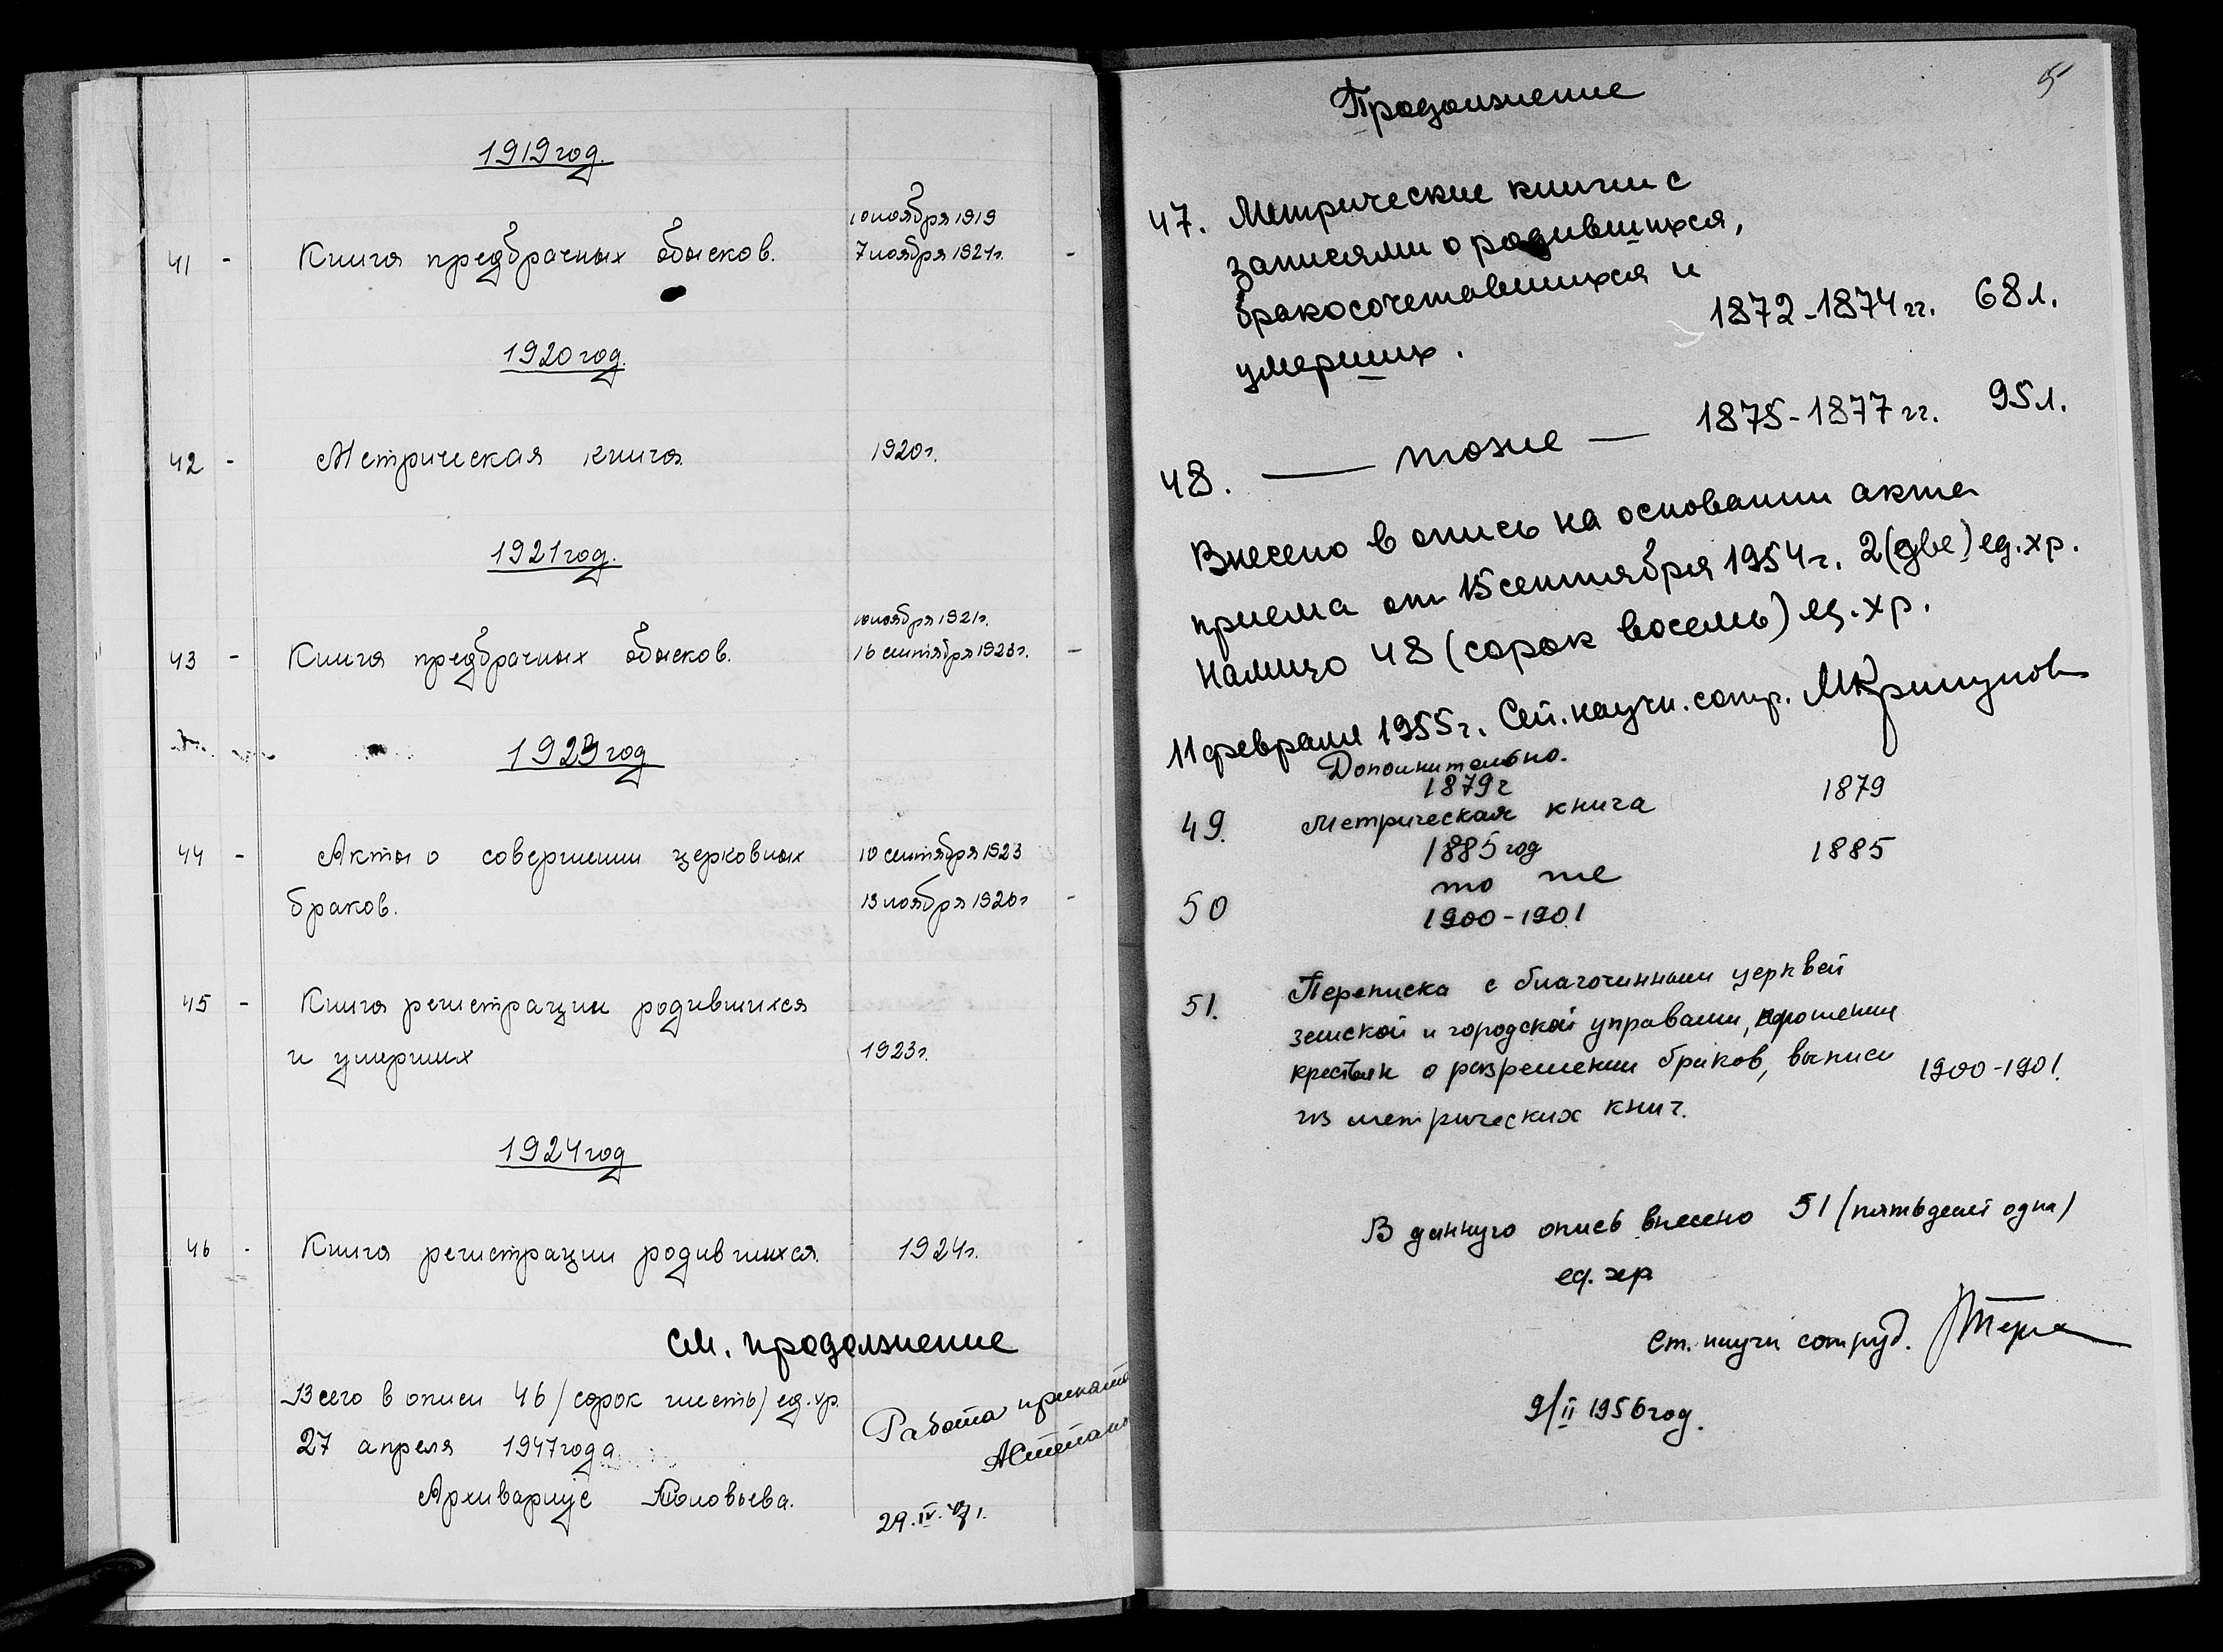 1919 год.
10 ноября 1919
41 - Книга предбрачных обысков. 7 ноября 1921г. -
1920 год.
42 - Метрическая книга 1920г.
1921 год.
10 ноября 1921г.
43 - Книга предбрачных обысков. 16 сентября 1923г. -
1923 год
44 - Акты о совершении церковных 10 сентября 1923
браков. 13 ноября 1926г -
45 - Книга регистрации родившихся
и умерших 1923г.
1924 год
46 - Книга регистрации родившихся. 1924г. -
См. продолжение
Всего в описи 46 /сорок шесть/ ед. хр.
27 апреля 1947 года
Архивариус
Работа принята
29.IV.47г.
5
Продолжение
47. Метрические книги с
записями о родившихся,
бракосочетавшихся и
умерших. 1872-1874 гг. 68 л.
48. — тоже — 1875-1877 гг. 95 л.
Внесено в опись на основании акта
приема от 15 сентября 1954 г. 2 (две) ед. хр.
Налицо 48 (сорок восемь) ед. хр.
11 февраля 1955 г. научн. сотр.
Дополнительно.
1879 г
49. Метрическая книга 1879
1885 год
50 то же 1885
1900-1901
51. Переписка с благочинными церквей
земской и городской управами, прошения
крестьян о разрешении браков, выписи
из метрических книг. 1900-1901.
В данную опись внесено 51 (пятьдесят одна)
ед. хр
Ст. научн сотруд.
9/II 1956 год.